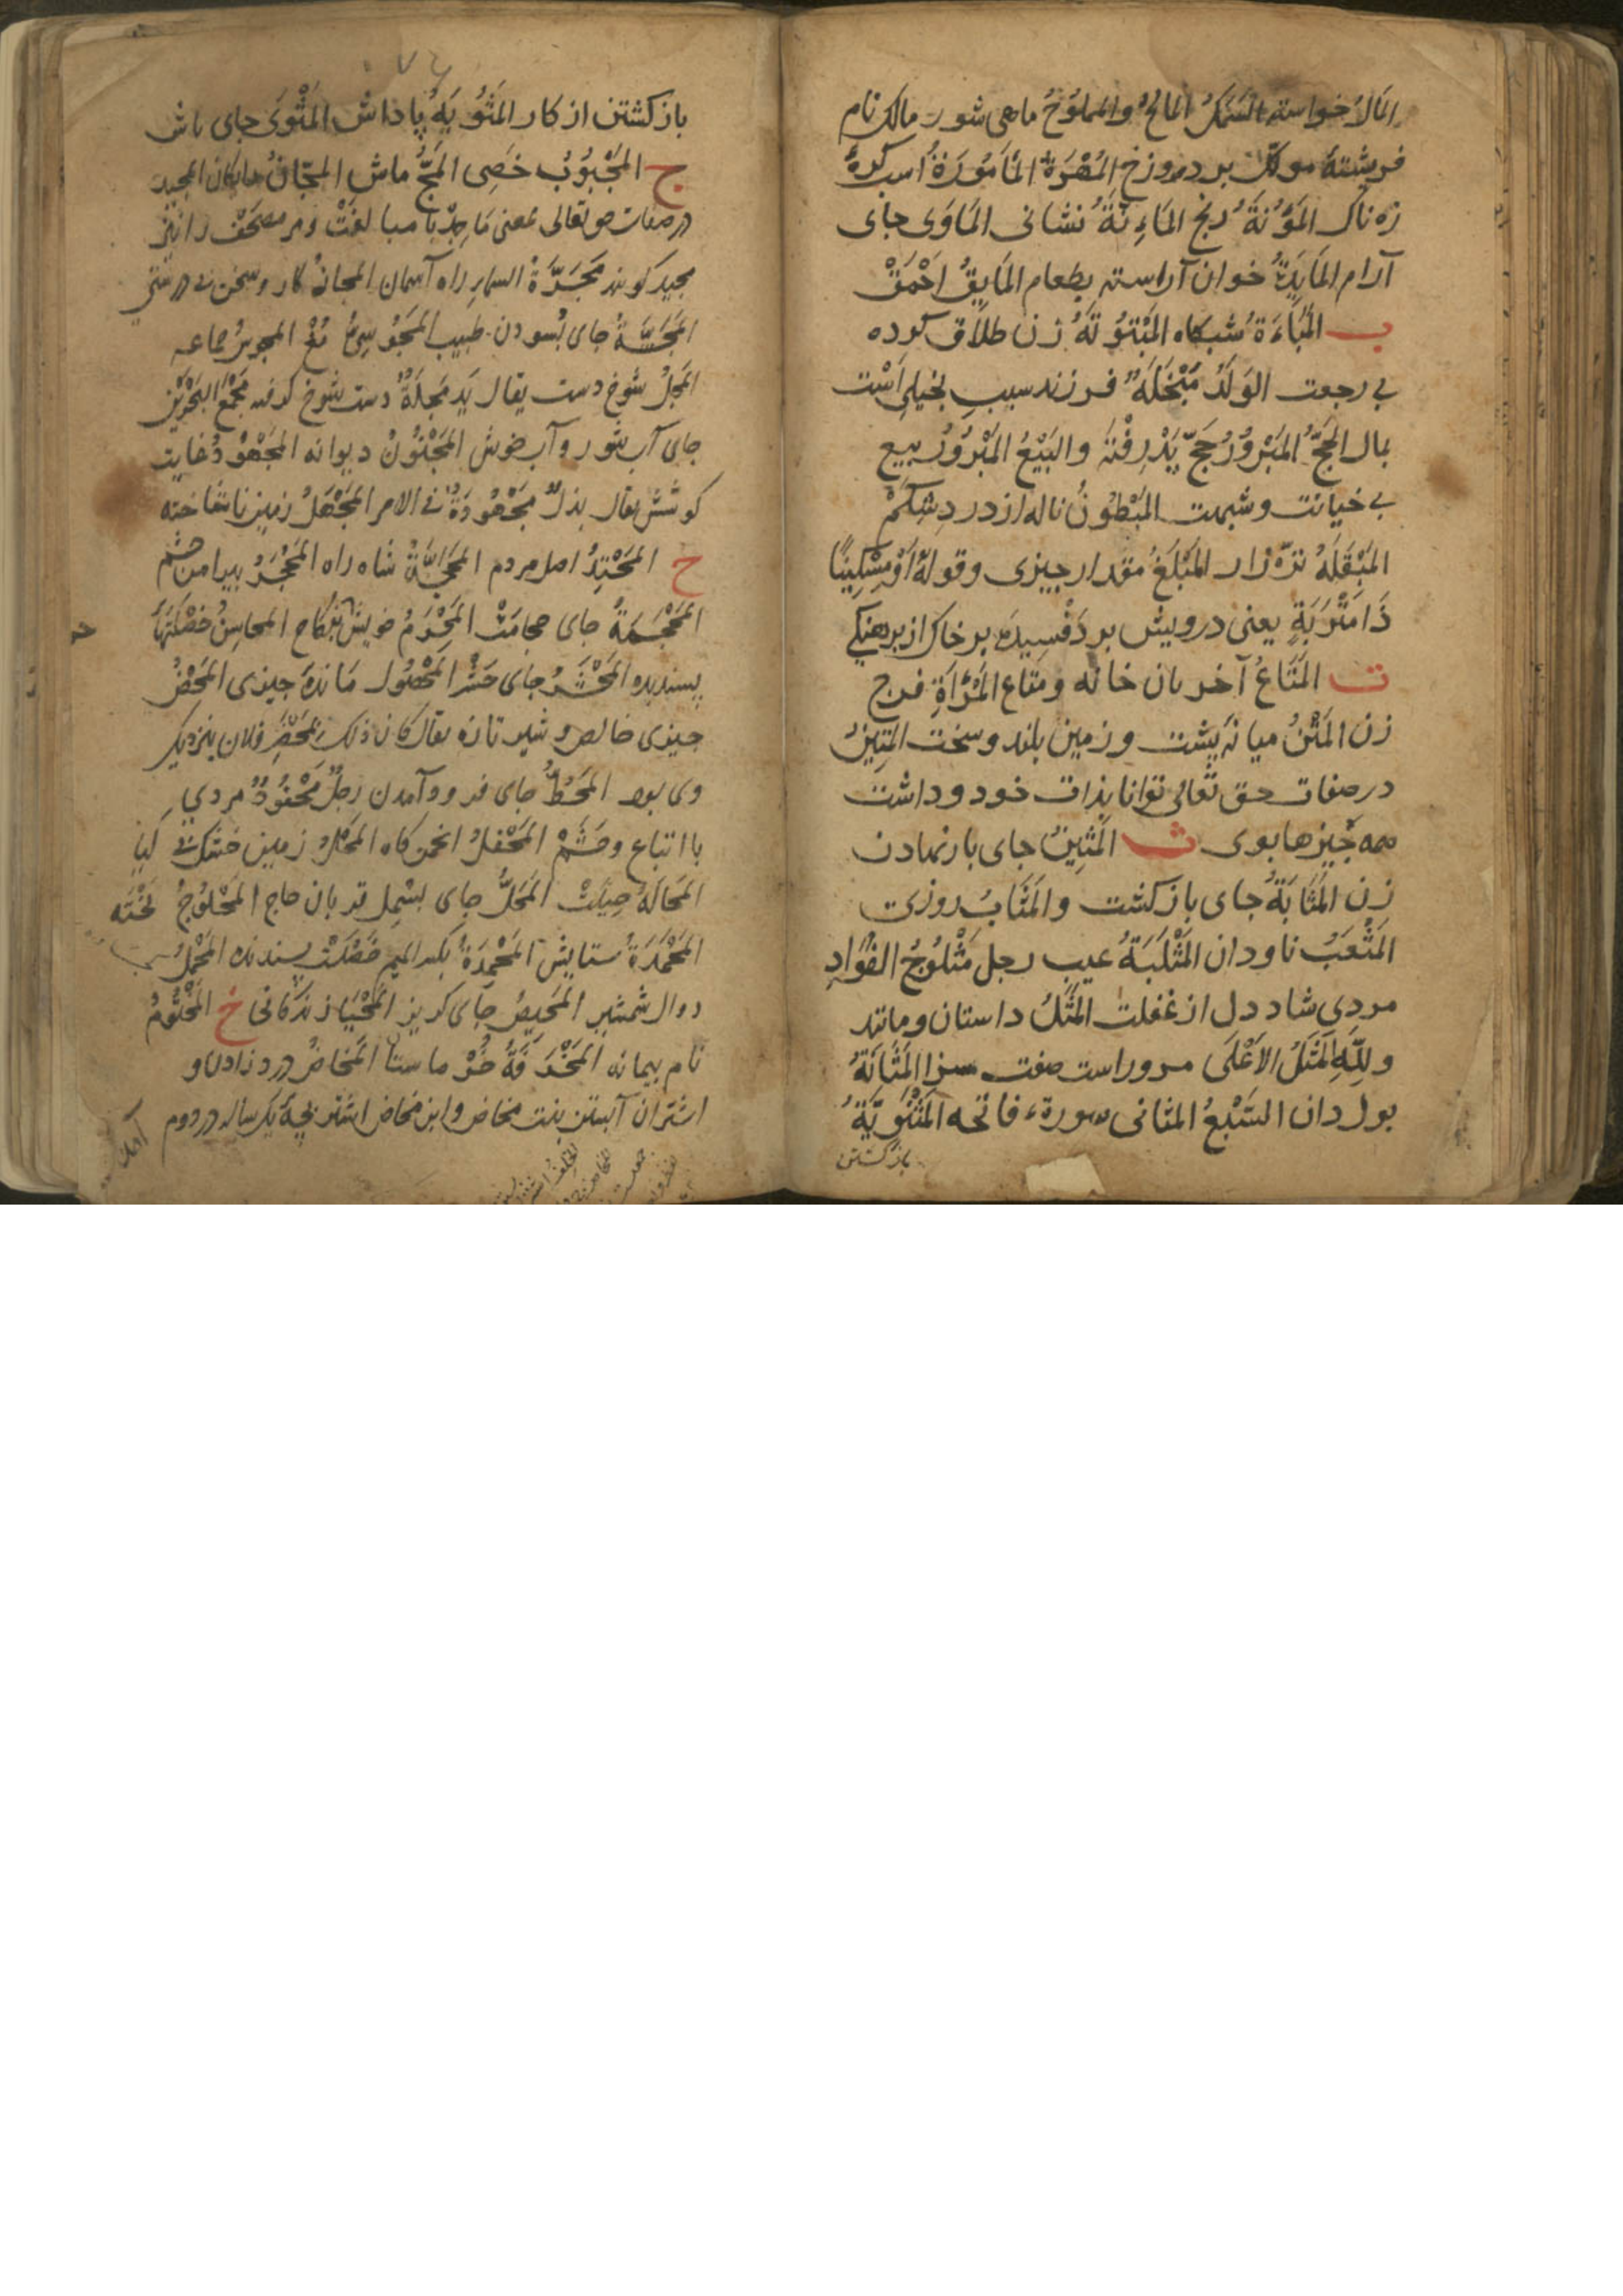 المَالُ خواسته السَّمَكُ المالحُ والمملُوحُ ماهی شور مالک نام
فرشتهٔ موکّل بر دروزخ المُهْرَةُ المَأمُورَةُ اسب کرهٔ
زه ناک المَؤُنَةُ رنج المَاءِنَةُ نشانی المَاوَی جای
آرام المَایِدَةُ خوان آراسته بطعام المَایِقُ احْمَقْ
ب المَبَاءَةُ شبکاه المَبْتُوتَةُ زن طلاق کرده
بی رجعت الوَلَدُ مَبْخَلَةٌ فرزند سببِ بخیلی اسْت
بمال الحَجُّ المَبْرُورُ حَجِّ پَذْرِفْتَه والبَیْعُ المَبْرُورُ بیع
بی خیانت و شبهت المَبْطُونُ ناله از دردِ شِکَمْ
المَبْقَلَةُ ترّه زار المَبْلَغُ مقدار چیزی وقولهُ اَوْ مِسْکِینًا
ذَا مَتْرَبَةٍ یعنی درویش بر دَفْسِیدهٔ بر خاک از برهنکی
ت المَتَاعُ آخریان خانه ومتاع المَرْاَةِ فرج
زن المَتْنُ میانهٔ پشت و زمین بلند و سخت المَتِینُ
در صفات حق تَعَالی توانا بذات خود و داشت
همه چیزها بوی ث المَثِینُ جای بار نهادن
زن المَثَابَةُ جای باز کشت والمَثَابُ روزی
المَثْعَبُ ناودان المَثْلَبَةُ عیب رجل مَثْلُوجُ الفُؤَادِ
مردی شاد دل از غفلت المَثَلُ داستان ومانند
وللّهِ المَثَلُ الاَعْلَی مر وراست صفت سزا المَثَانَةُ
بول دان السَّبْعُ المثانی سورة فاتحه المَثْنَوِیَّةُ
باز کشتن
باز کشتن از کار المَثُوبَةُ پاداش المَثْوَی جای باش
ج المَجْبُوبُ خَصِی المَجُّ ماش المَجَّانُ رایکان المجید
در صفات حق تعالی بمعنی مَاجِدْ با مبالغتْ و مر مصحَفْ را نیز
مجید کویند مَجَرَّةُ السماءِ راه آسمان المجانةُ کار و سخن بی درستی
المَجَسَّةُ جای بُسودن طبیب المَجُوسِیُّ مُغْ المجوسُ جماعه
المَجِلُ شوخ دست یقال یَد مَجِلَةٌ دست شوخ کرفته مَجْمَعُ البَحْرَیْنِ
جای آب شور و آب خوش المَجْنُونُ دیوانه المَجْهُودُ غایت
کوشش یقال بذل مَجْهُودَهُ فی الامر المَجْهَلُ زمین ناشناخته
ح المَحْتِدُ اصل مردم المَحَجَّةُ شاه راه المَحْجَرُ پیرامن چشم
المَحْجَمَةُ جای حجامتْ المَحْرَمُ خویش بنکاح المحاسِنُ خصْلَتهاءِ
پسندیده المَحْشَرُ جای حَشْر المَحْصُول ماندهٔ چیزی المَحْضُ
چیزی خالص و شیر تازه یقال کان ذلک بِمَحْضَرِ فلان بنزدیک
وی بود المَحَطُّ جای فرود آمدن رجلٌ مَحْفُودٌ مردی
با اتباع و حَشَمْ المَحْفِلُ انجمن کاه المَحْلُ زمین خشک بی کیا
المَحَالَةُ حِیلَتْ المَحَلُّ جای بسْمِل قربان حاج المَحْلُوجُ لَخْتَه
المَحْمَدَةُ ستایش المَحْمِدَةُ بکسر المیم خَصْلَتْ پسندیده المَحْمِلُ
دوال شمشیر المَحِیصُ جای کریز المَحْیَا زندکانی خ المَخْتُومُ
نام پیمانه المَخَاضُ درد زادن و
اشتران آبستن بنت مخاض وابن مخاض اشتر بچهٔ یکساله در دوم